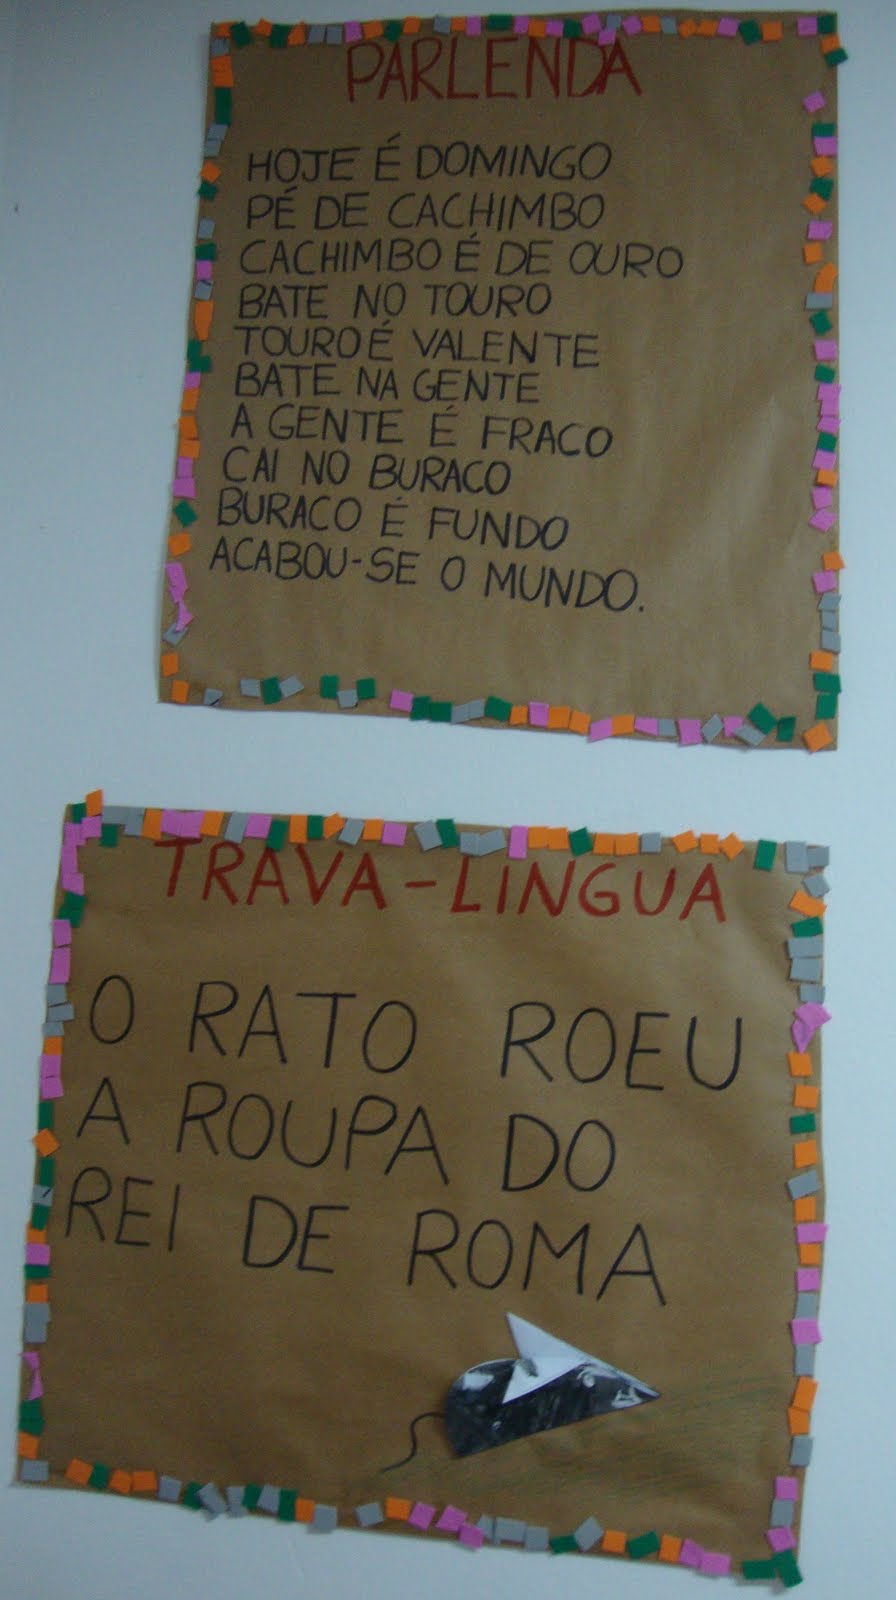 PARLENDA
HOJE É DOMINGO
PÉ DE CACHIMBO
CACHIMBO É DE OURO
BATE NO TOURO
TOURO É VALENTE
BATE NA GENTE
A GENTE É FRACO
CAI NO BURACO
BURACO É FUNDO
ACABOU-SE O MUNDO.
TRAVA-LINGUA
O RATO ROEU
A ROUPA DO
REI DE ROMA